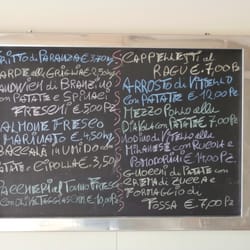 FRITTO di PARANZA € 3,70hg
SARDE alla GRIGLIA € 2,50hg
SANDWICH di BRANZINO
con PATATE e SPINACI
FRESCHI € 5,00 Pz
SALMONE FRESCO
MARINATO € 4,50hg
BACCALÀ in UMIDO con
PATATE e CIPOLLA € 3,50
PACCHERI al TONNO FRESCO
CAPPELLETTI al
RAGÙ € 7,00 Pz
ARROSTO di VITELLO
con PATATE € 12,00 Pz
MEZZO POLLO alla
DIAVOLA con PATATE € 7,00
di VITELLO alla
MILANESE con RUCOLA e
POMODORINI € 14,00 Pz.
GNOCCHI di PATATE con
CREMA di ZUCCA e
FORMAGGIO di
FOSSA € 7,00 Pz